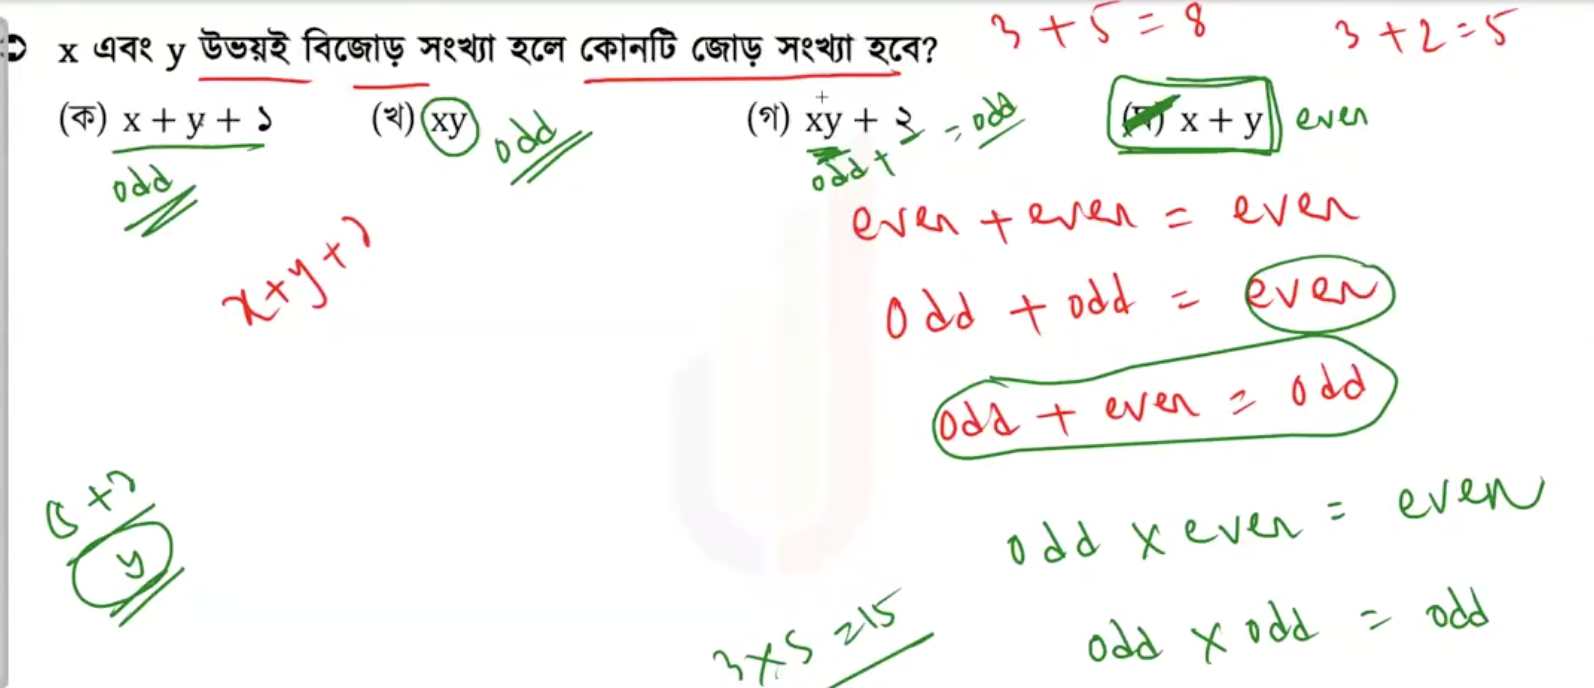 x এবং y উভয়ই বিজোড় সংখ্যা হলে কোনটি জোড় সংখ্যা হবে? 3 + 5 = 8 3 + 2 = 5
(ক) x + y + ১ (খ) xy odd (গ) xy + ২ = odd (ঘ) x + y even
odd odd +
even + even = even
x + y + ১
odd + odd = even
odd + even = odd
odd x even = even
3 x 5 = 15
odd x odd = odd